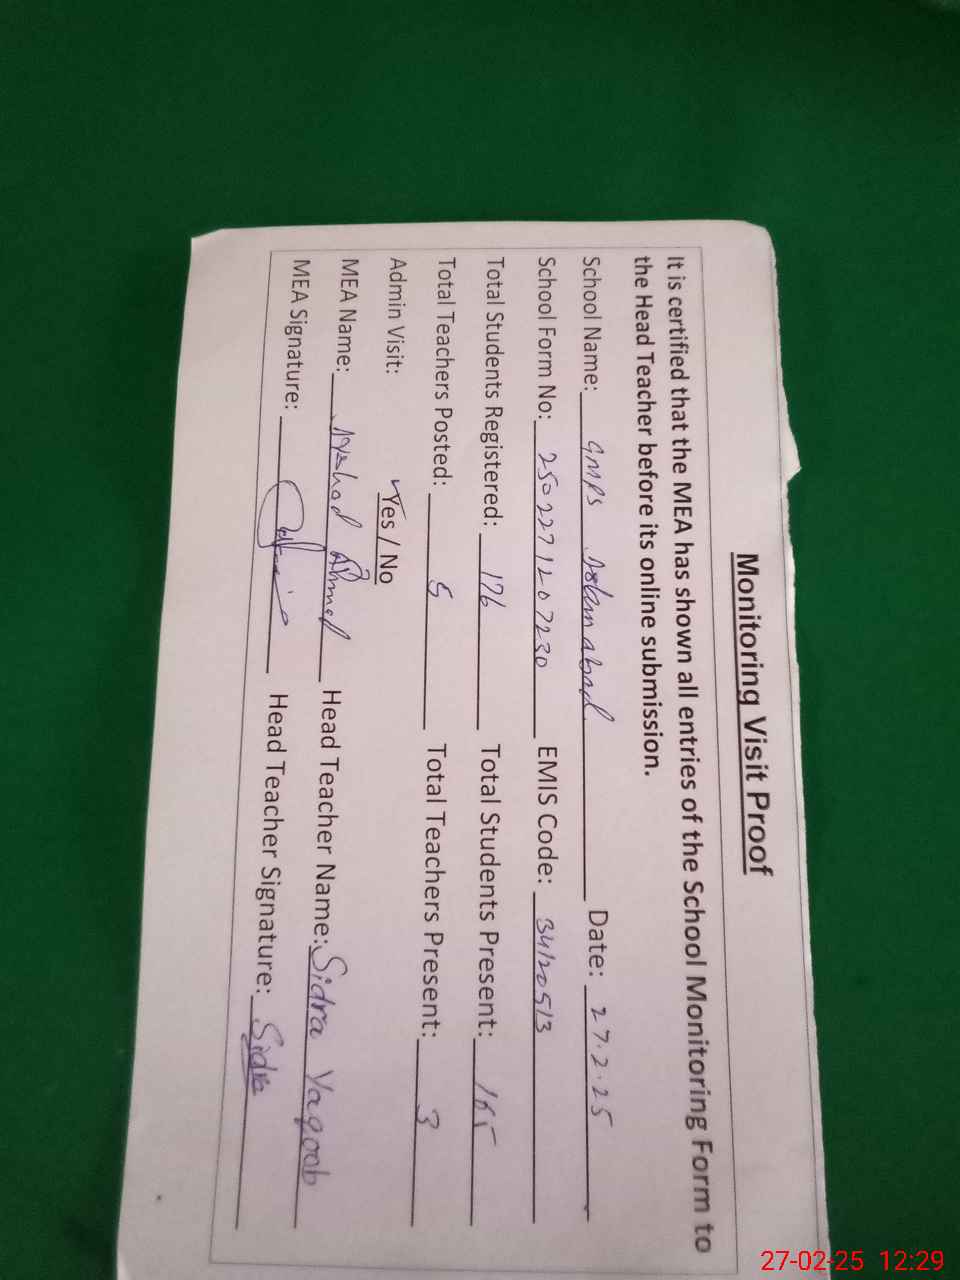 Monitoring Visit Proof
It is certified that the MEA has shown all entries of the School Monitoring Form to
the Head Teacher before its online submission.
School Name: GMPS Islam abad Date: 27.2.25
School Form No: 2502271207230 EMIS Code: 34120513
Total Students Registered: 176 Total Students Present: 165
Total Teachers Posted: 5 Total Teachers Present: 3
Admin Visit: Yes / No
MEA Name: Ahmed Head Teacher Name: Sidra Yaqoob
MEA Signature: Head Teacher Signature: Sidra
27-02-25 12:29